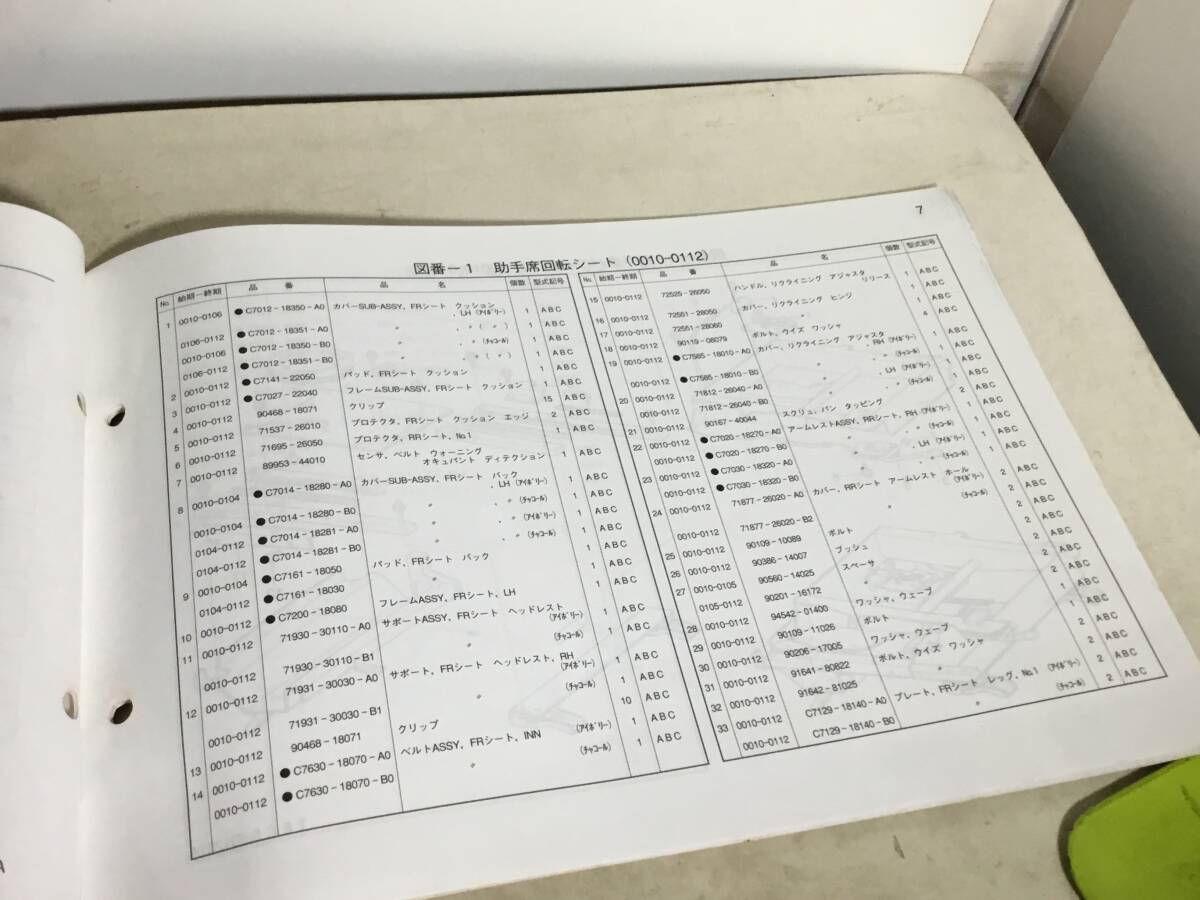 7
図番ー1 助手席回転シート (0010-0112)
No. 始期ー終期 品番 品名 個数 型式記号
1 0010-0106 ●C7012-18350-A0 カバーSUB-ASSY, FRシート クッション
, LH (アイボリー) 1 ABC
0106-0112 ●C7012-18351-A0 〃 〃 ( 〃 ) 1 ABC
0010-0106 ●C7012-18350-B0 〃 〃 (チャコール) 1 ABC
0106-0112 ●C7012-18351-B0 〃 〃 ( 〃 ) 1 ABC
2 0010-0112 ●C7141-22050 パッド, FRシート クッション 1 ABC
3 0010-0112 ●C7027-22040 フレームSUB-ASSY, FRシート クッション 1 ABC
4 0010-0112 90468-18071 クリップ 15 ABC
5 0010-0112 71537-26010 プロテクタ, FRシート クッション エッジ 2 ABC
6 0010-0112 71695-26050 プロテクタ, RRシート, No.1 1 ABC
7 0010-0112 89953-44010 センサ, ベルト ウォーニング
オキュパント ディテクション 1 ABC
8 0010-0104 ●C7014-18280-A0 カバーSUB-ASSY, FRシート バック
, LH (アイボリー) 1 ABC
0010-0104 ●C7014-18280-B0 〃 , 〃 (チャコール) 1 ABC
0104-0112 ●C7014-18281-A0 〃 , 〃 (アイボリー) 1 ABC
0104-0112 ●C7014-18281-B0 〃 , 〃 (チャコール) 1 ABC
9 0010-0104 ●C7161-18050 パッド, FRシート バック 1 ABC
0104-0112 ●C7161-18030 〃 1 ABC
10 0010-0112 ●C7200-18080 フレームASSY, FRシート, LH
11 0010-0112 71930-30110-A0 サポートASSY, FRシート ヘッドレスト
(アイボリー) 1 ABC
0010-0112 71930-30110-B1 〃 (チャコール) 1 ABC
12 0010-0112 71931-30030-A0 サポート, FRシート ヘッドレスト, RH
(アイボリー) 1 ABC
0010-0112 71931-30030-B1 〃 (チャコール) 1 ABC
13 0010-0112 90468-18071 クリップ 10 ABC
14 0010-0112 ●C7630-18070-A0 ベルトASSY, FRシート, INN (アイボリー) 1 ABC
0010-0112 ●C7630-18070-B0 〃 (チャコール) 1 ABC
No. 始期ー終期 品番 品名 個数 型式記号
15 0010-0112 72525-26050 ハンドル, リクライニング アジャスタ
リリース 1 ABC
16 0010-0112 72551-28050 カバー, リクライニング ヒンジ 1 ABC
17 0010-0112 72551-28060 〃
18 0010-0112 90119-08079 ボルト, ウイズ ワッシャ 4 ABC
19 0010-0112 ●C7585-18010-A0 カバー, リクライニング アジャスタ
, RH (アイボリー) 1 ABC
0010-0112 ●C7585-18010-B0 〃 , 〃 (チャコール) 1 ABC
20 0010-0112 71812-26040-A0 〃 , LH (アイボリー) 1 ABC
0010-0112 71812-26040-B0 〃 (チャコール) 1 ABC
21 0010-0112 90167-40044 スクリュ, パン タッピング 2 ABC
22 0010-0112 ●C7020-18270-A0 アームレストASSY, RRシート, RH (アイボリー) 1 ABC
0010-0112 ●C7020-18270-B0 〃 , 〃 (チャコール) 1 ABC
23 0010-0112 ●C7030-18320-A0 〃 , LH (アイボリー) 1 ABC
0010-0112 ●C7030-18320-B0 〃 , 〃 (チャコール) 1 ABC
24 0010-0112 71877-26020-A0 カバー, RRシート アームレスト ホール
(アイボリー) 2 ABC
0010-0112 71877-26020-B2 〃 (チャコール) 2 ABC
25 0010-0112 90109-10089 ボルト 2 ABC
26 0010-0112 90386-14007 ブッシュ 2 ABC
27 0010-0105 90560-14025 スペーサ 2 ABC
0105-0112 90201-16172 2 ABC
28 0010-0112 94542-01400 ワッシャ, ウェーブ 2 ABC
29 0010-0112 90109-11026 ボルト 1 ABC
30 0010-0112 90206-17005 ワッシャ, ウェーブ 1 ABC
31 0010-0112 91641-80822 ボルト, ウイズ ワッシャ 2 ABC
32 0010-0112 91642-81025 〃 2 ABC
33 0010-0112 C7129-18140-A0 プレート, FRシート レッグ, No.1 (アイボリー) 2 ABC
0010-0112 C7129-18140-B0 〃 (チャコール) 2 ABC
A